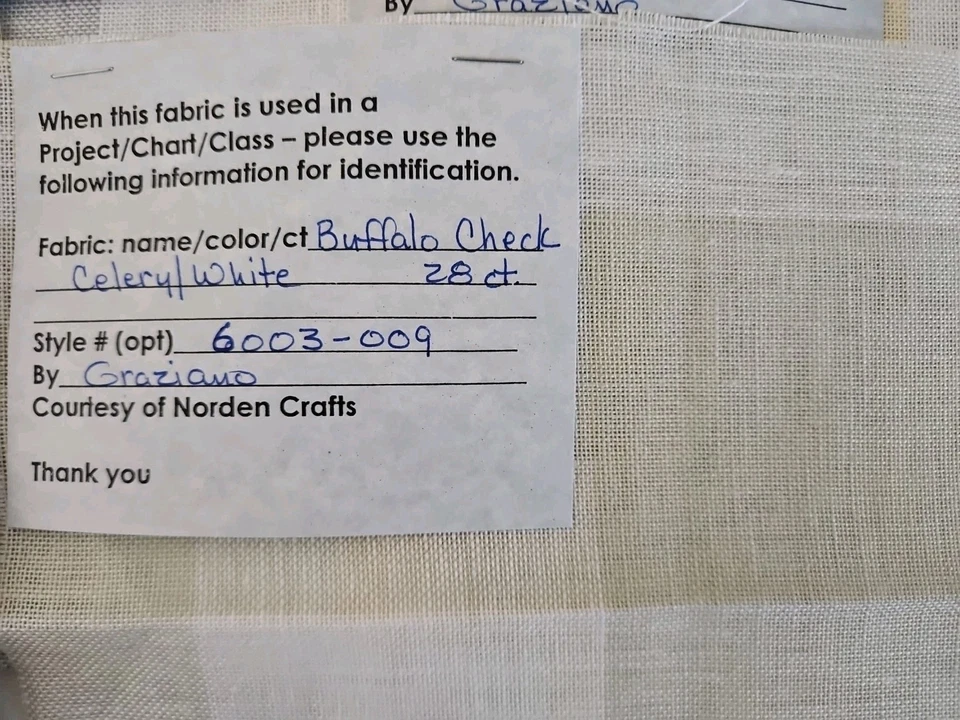 By Graziano
When this fabric is used in a
Project/Chart/Class – please use the
following information for identification.
Fabric: name/color/ct Buffalo Check
Celery/White 28 ct.
Style # (opt) 6003-009
By Graziano
Courtesy of Norden Crafts
Thank you